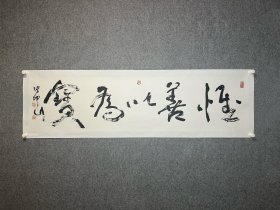 惟善以為寶